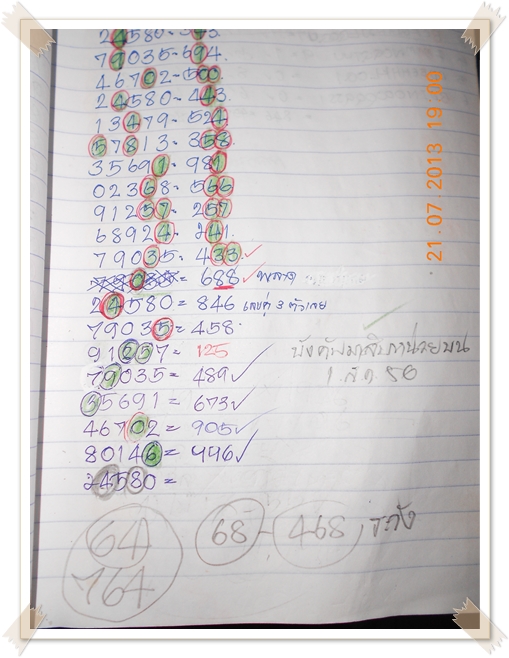 79035-594.
46702-500.
24580-443.
13479-524
57813-358
35691-981
02368-566
91257-257
68924-241.
79035-433
= 688
24580=846 เลขคู่ 3 ตัวเลย
79035=458
91257=125
79035=489
35691=673
46702=905
80146=446
24580=
1 สค 56
64
764
68-468 ระวัง
21.07.2013 19:00